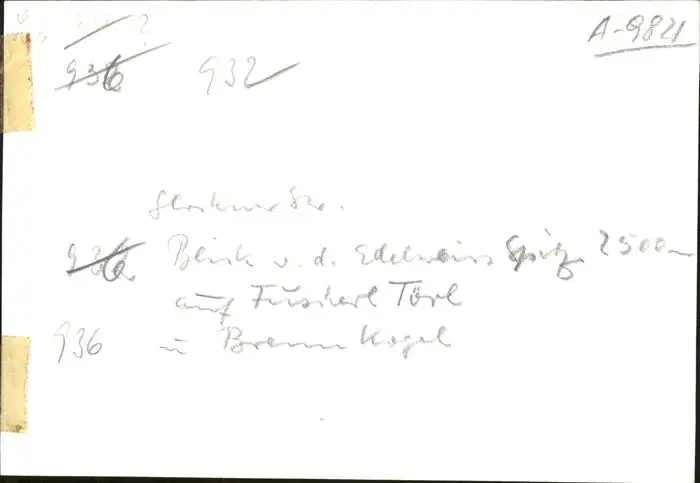 A-9821
936 932
Glockner Str.
936 Blick v. d. Edelweiss Spitze 2500m
auf Fuscherl Törl
936 u Brennkogel